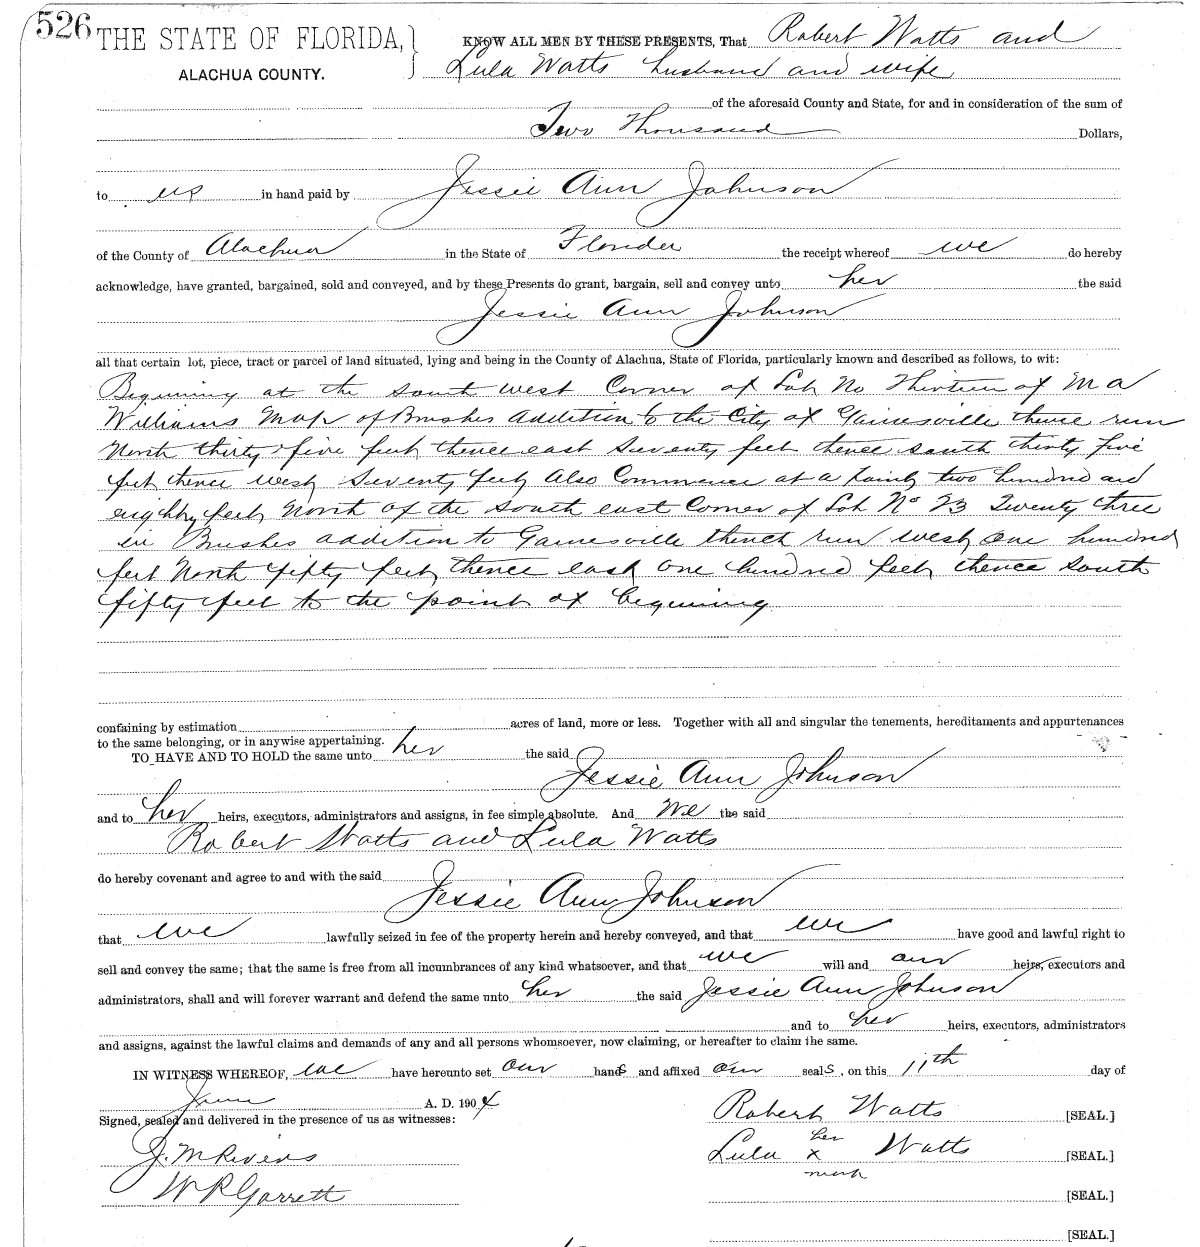 526
THE STATE OF FLORIDA, } KNOW ALL MEN BY THESE PRESENTS, That Robert Watts and
ALACHUA COUNTY. Lula Watts husband and wife
of the aforesaid County and State, for and in consideration of the sum of
Two Thousand Dollars,
to us in hand paid by Jessie Ann Johnson
of the County of Alachua in the State of Florida the receipt whereof we do hereby
acknowledge, have granted, bargained, sold and conveyed, and by these Presents do grant, bargain, sell and convey unto her the said
Jessie Ann Johnson
all that certain lot, piece, tract or parcel of land situated, lying and being in the County of Alachua, State of Florida, particularly known and described as follows, to wit:
Beginning at the south west Corner of Lot No Thirteen of M A
Williams Map of Brushes addition to the City of Gainesville thence run
North thirty five feet thence east seventy feet thence south thirty five
feet thence west seventy feet Also Commence at a two hundred and
eighty feet North of the south east Corner of Lot No 23 Twenty three
in Brushes addition to Gainesville thence run west one hundred
feet North fifty feet thence east one hundred feet thence south
fifty feet to the point of beginning
containing by estimation acres of land, more or less. Together with all and singular the tenements, hereditaments and appurtenances
to the same belonging, or in anywise appertaining.
TO HAVE AND TO HOLD the same unto her the said
Jessie Ann Johnson
and to her heirs, executors, administrators and assigns, in fee simple absolute. And we the said
Robert Watts and Lula Watts
do hereby covenant and agree to and with the said
Jessie Ann Johnson
that we lawfully seized in fee of the property herein and hereby conveyed, and that we have good and lawful right to
sell and convey the same; that the same is free from all incumbrances of any kind whatsoever, and that we will and our heirs, executors and
administrators, shall and will forever warrant and defend the same unto her the said Jessie Ann Johnson
and to her heirs, executors, administrators
and assigns, against the lawful claims and demands of any and all persons whomsoever, now claiming, or hereafter to claim the same.
IN WITNESS WHEREOF, we have hereunto set our hands and affixed our seals, on this 11th day of
June A. D. 1904
Signed, sealed and delivered in the presence of us as witnesses:
Robert Watts [SEAL.]
J. M Rivers
Lula her x mark Watts [SEAL.]
W R Garrett
[SEAL.]
[SEAL.]